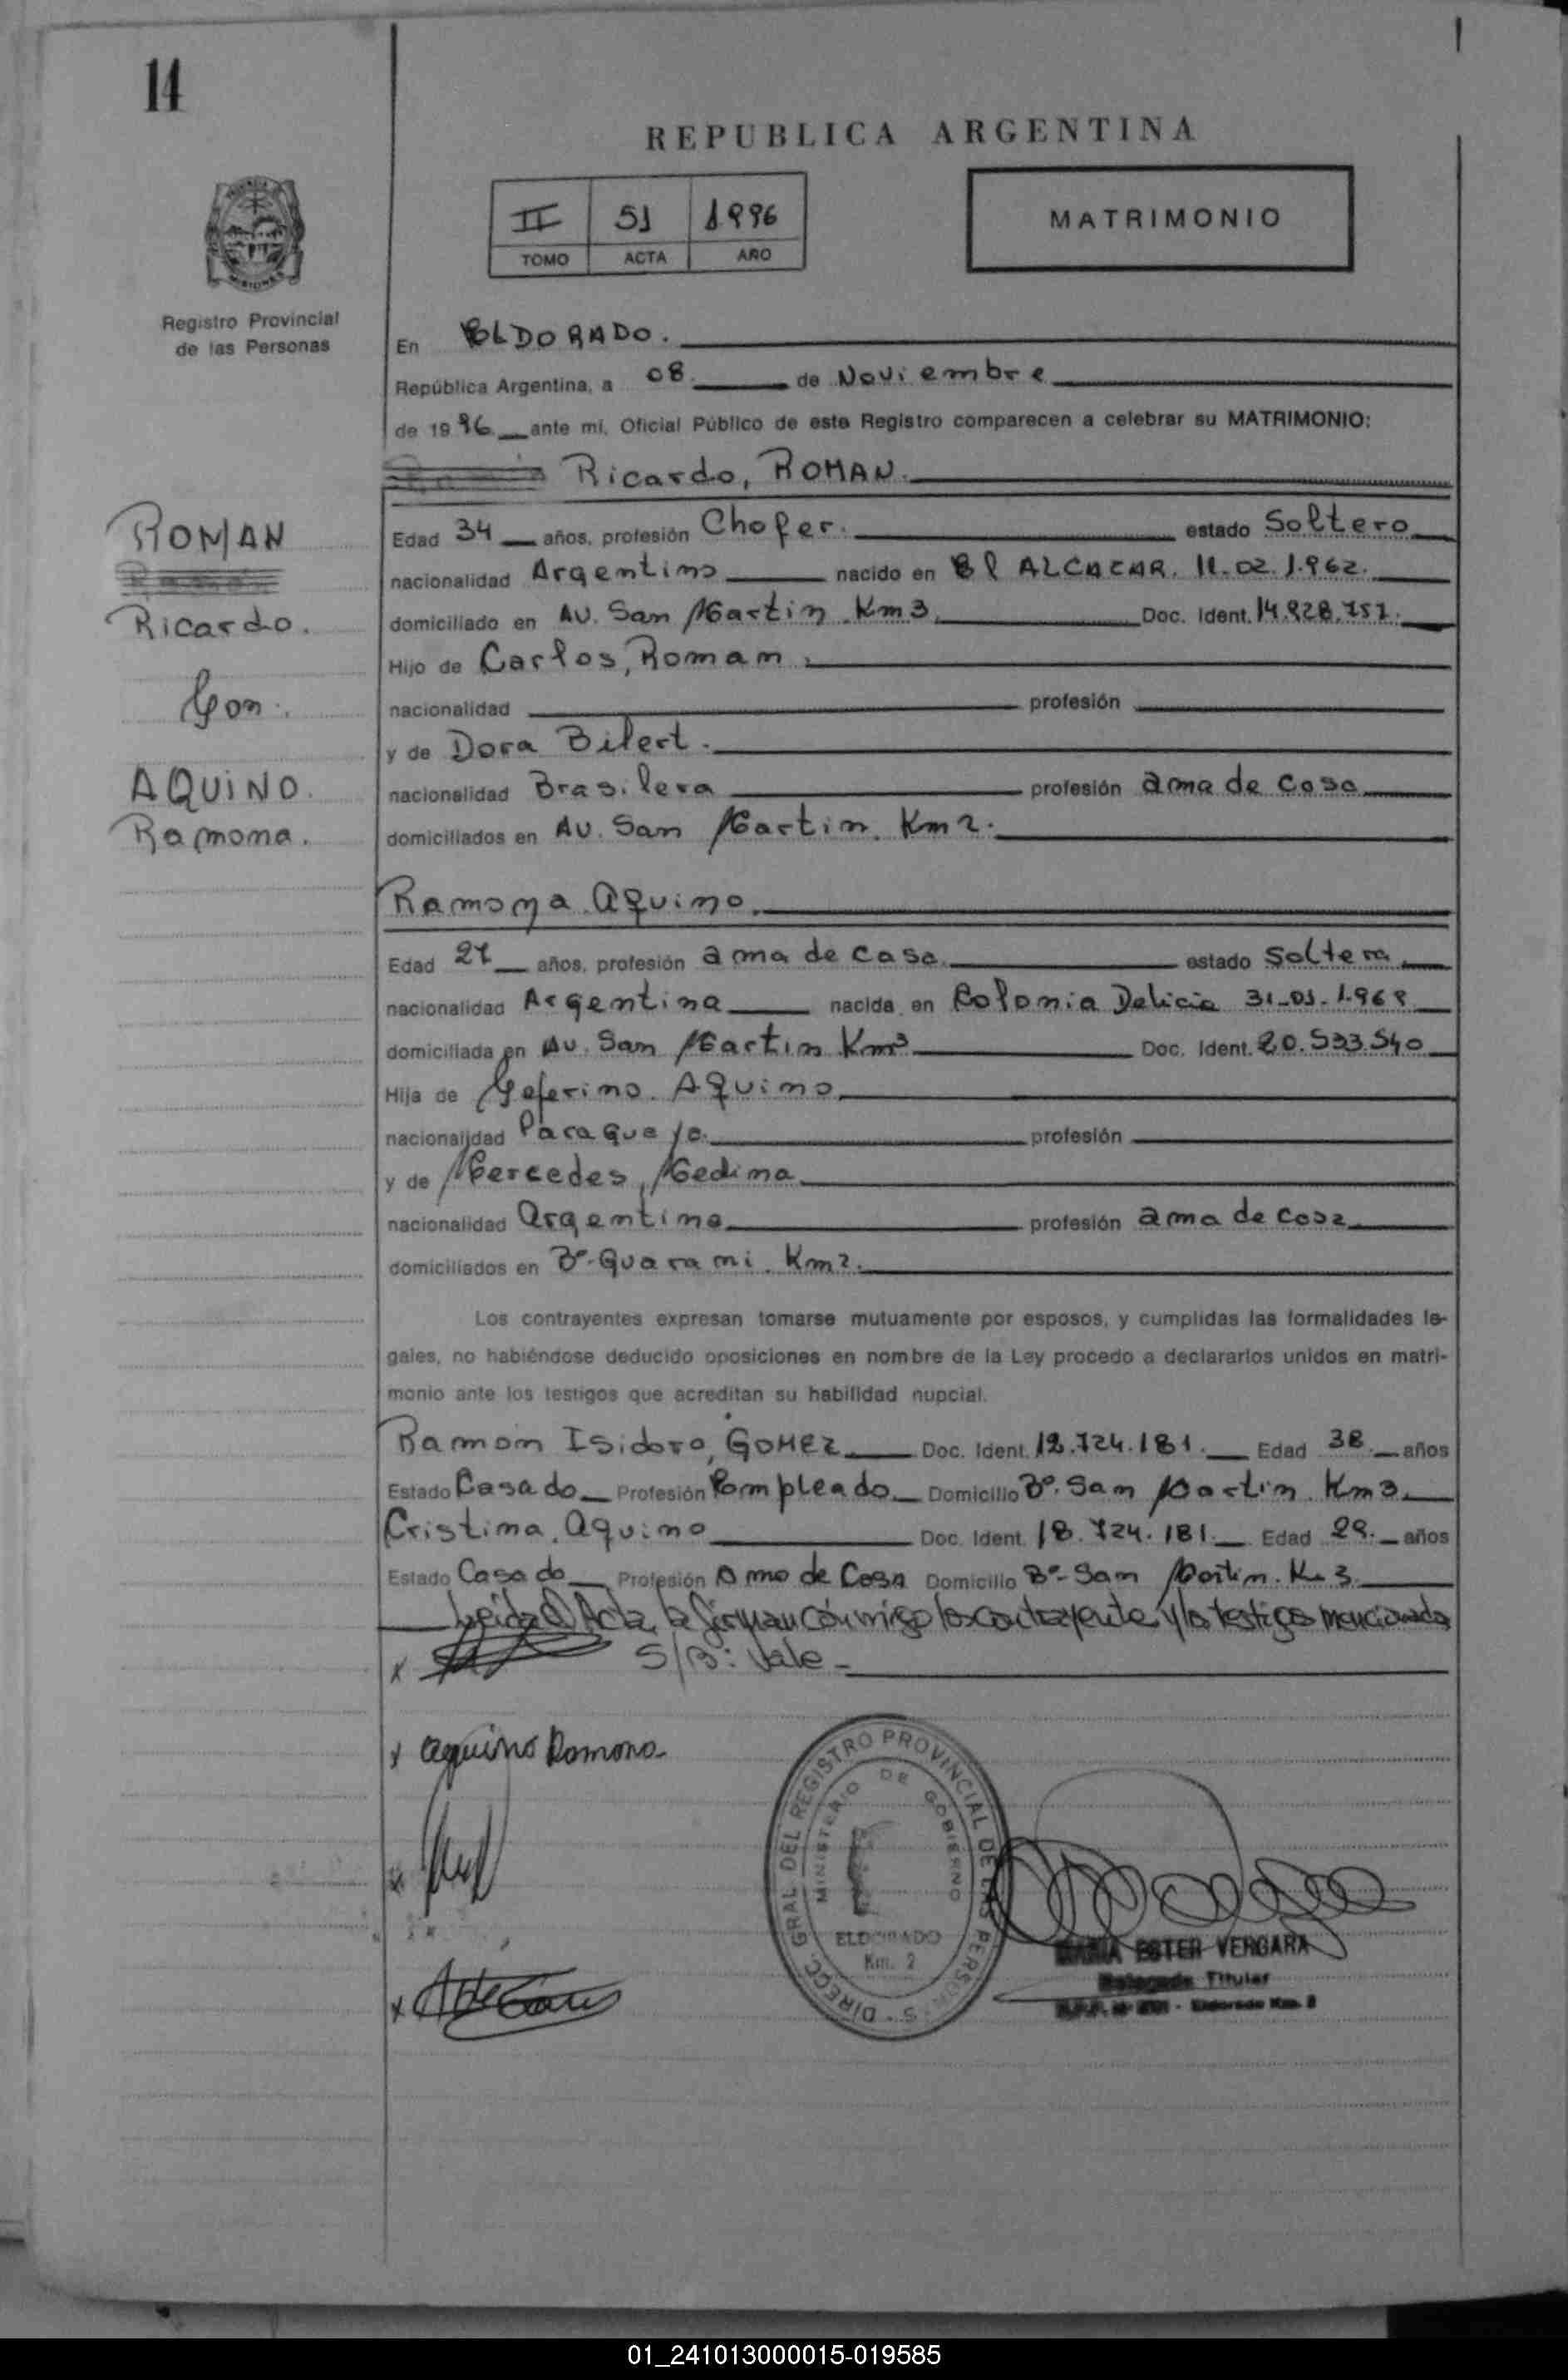 14
REPUBLICA ARGENTINA
II 51 1996
TOMO ACTA AÑO
MATRIMONIO
Registro Provincial
de las Personas
En ELDORADO.
República Argentina, a 08 de Noviembre
de 1996 ante mi, Oficial Público de este Registro comparecen a celebrar su MATRIMONIO:
Ricardo, ROMAN.
ROMAN
Ricardo.
Con.
AQUINO.
Ramona.
Edad 34 años, profesión Chofer. estado Soltero
nacionalidad Argentino nacido en El ALCAZAR. 11.02.1.962.
domiciliado en Av. San Martin Km3. Doc. Ident. 14.928.757.
Hijo de Carlos, Roman.
nacionalidad profesión
y de Dora Bilert.
nacionalidad Brasilera profesión ama de casa
domiciliados en Av. San Martin. Km2.
Ramona Aquino.
Edad 27 años, profesión ama de casa. estado Soltera
nacionalidad Argentina nacida en Colonia Delicia 31-01-1.969
domiciliada en Av. San Martin Km3 Doc. Ident. 20.533.540
Hija de Ceferino. Aquino
nacionalidad Paraguayo. profesión
y de Mercedes, Medina
nacionalidad Argentina profesión ama de casa
domiciliados en Bº-Guarani. Km2.
Los contrayentes expresan tomarse mutuamente por esposos, y cumplidas las formalidades le-
gales, no habiéndose deducido oposiciones en nombre de la Ley procedo a declararlos unidos en matri-
monio ante los testigos que acreditan su habilidad nupcial.
Ramón Isidoro, GOMEZ Doc. Ident. 12.724.181. Edad 38 años
Estado Casado Profesión Empleado Domicilio Bº. San Martin. Km3
Cristina. Aquino Doc. Ident. 18.724.181. Edad 29. años
Estado Casado Profesión Ama de Casa Domicilio Bº-San Martin. Km3.
Leida el Acta, la firman conmigo los contrayente y los testigos mencionados
x S/B: Vale
x Aquino Ramona
x
x
DIRECC. GRAL. DEL REGISTRO PROVINCIAL DE LAS PERSONAS
MINISTERIO DE GOBIERNO
ELDORADO
Km. 2
MARIA ESTER VERGARA
Delegada Titular
Eldorado Km. 2
01_241013000015-019585